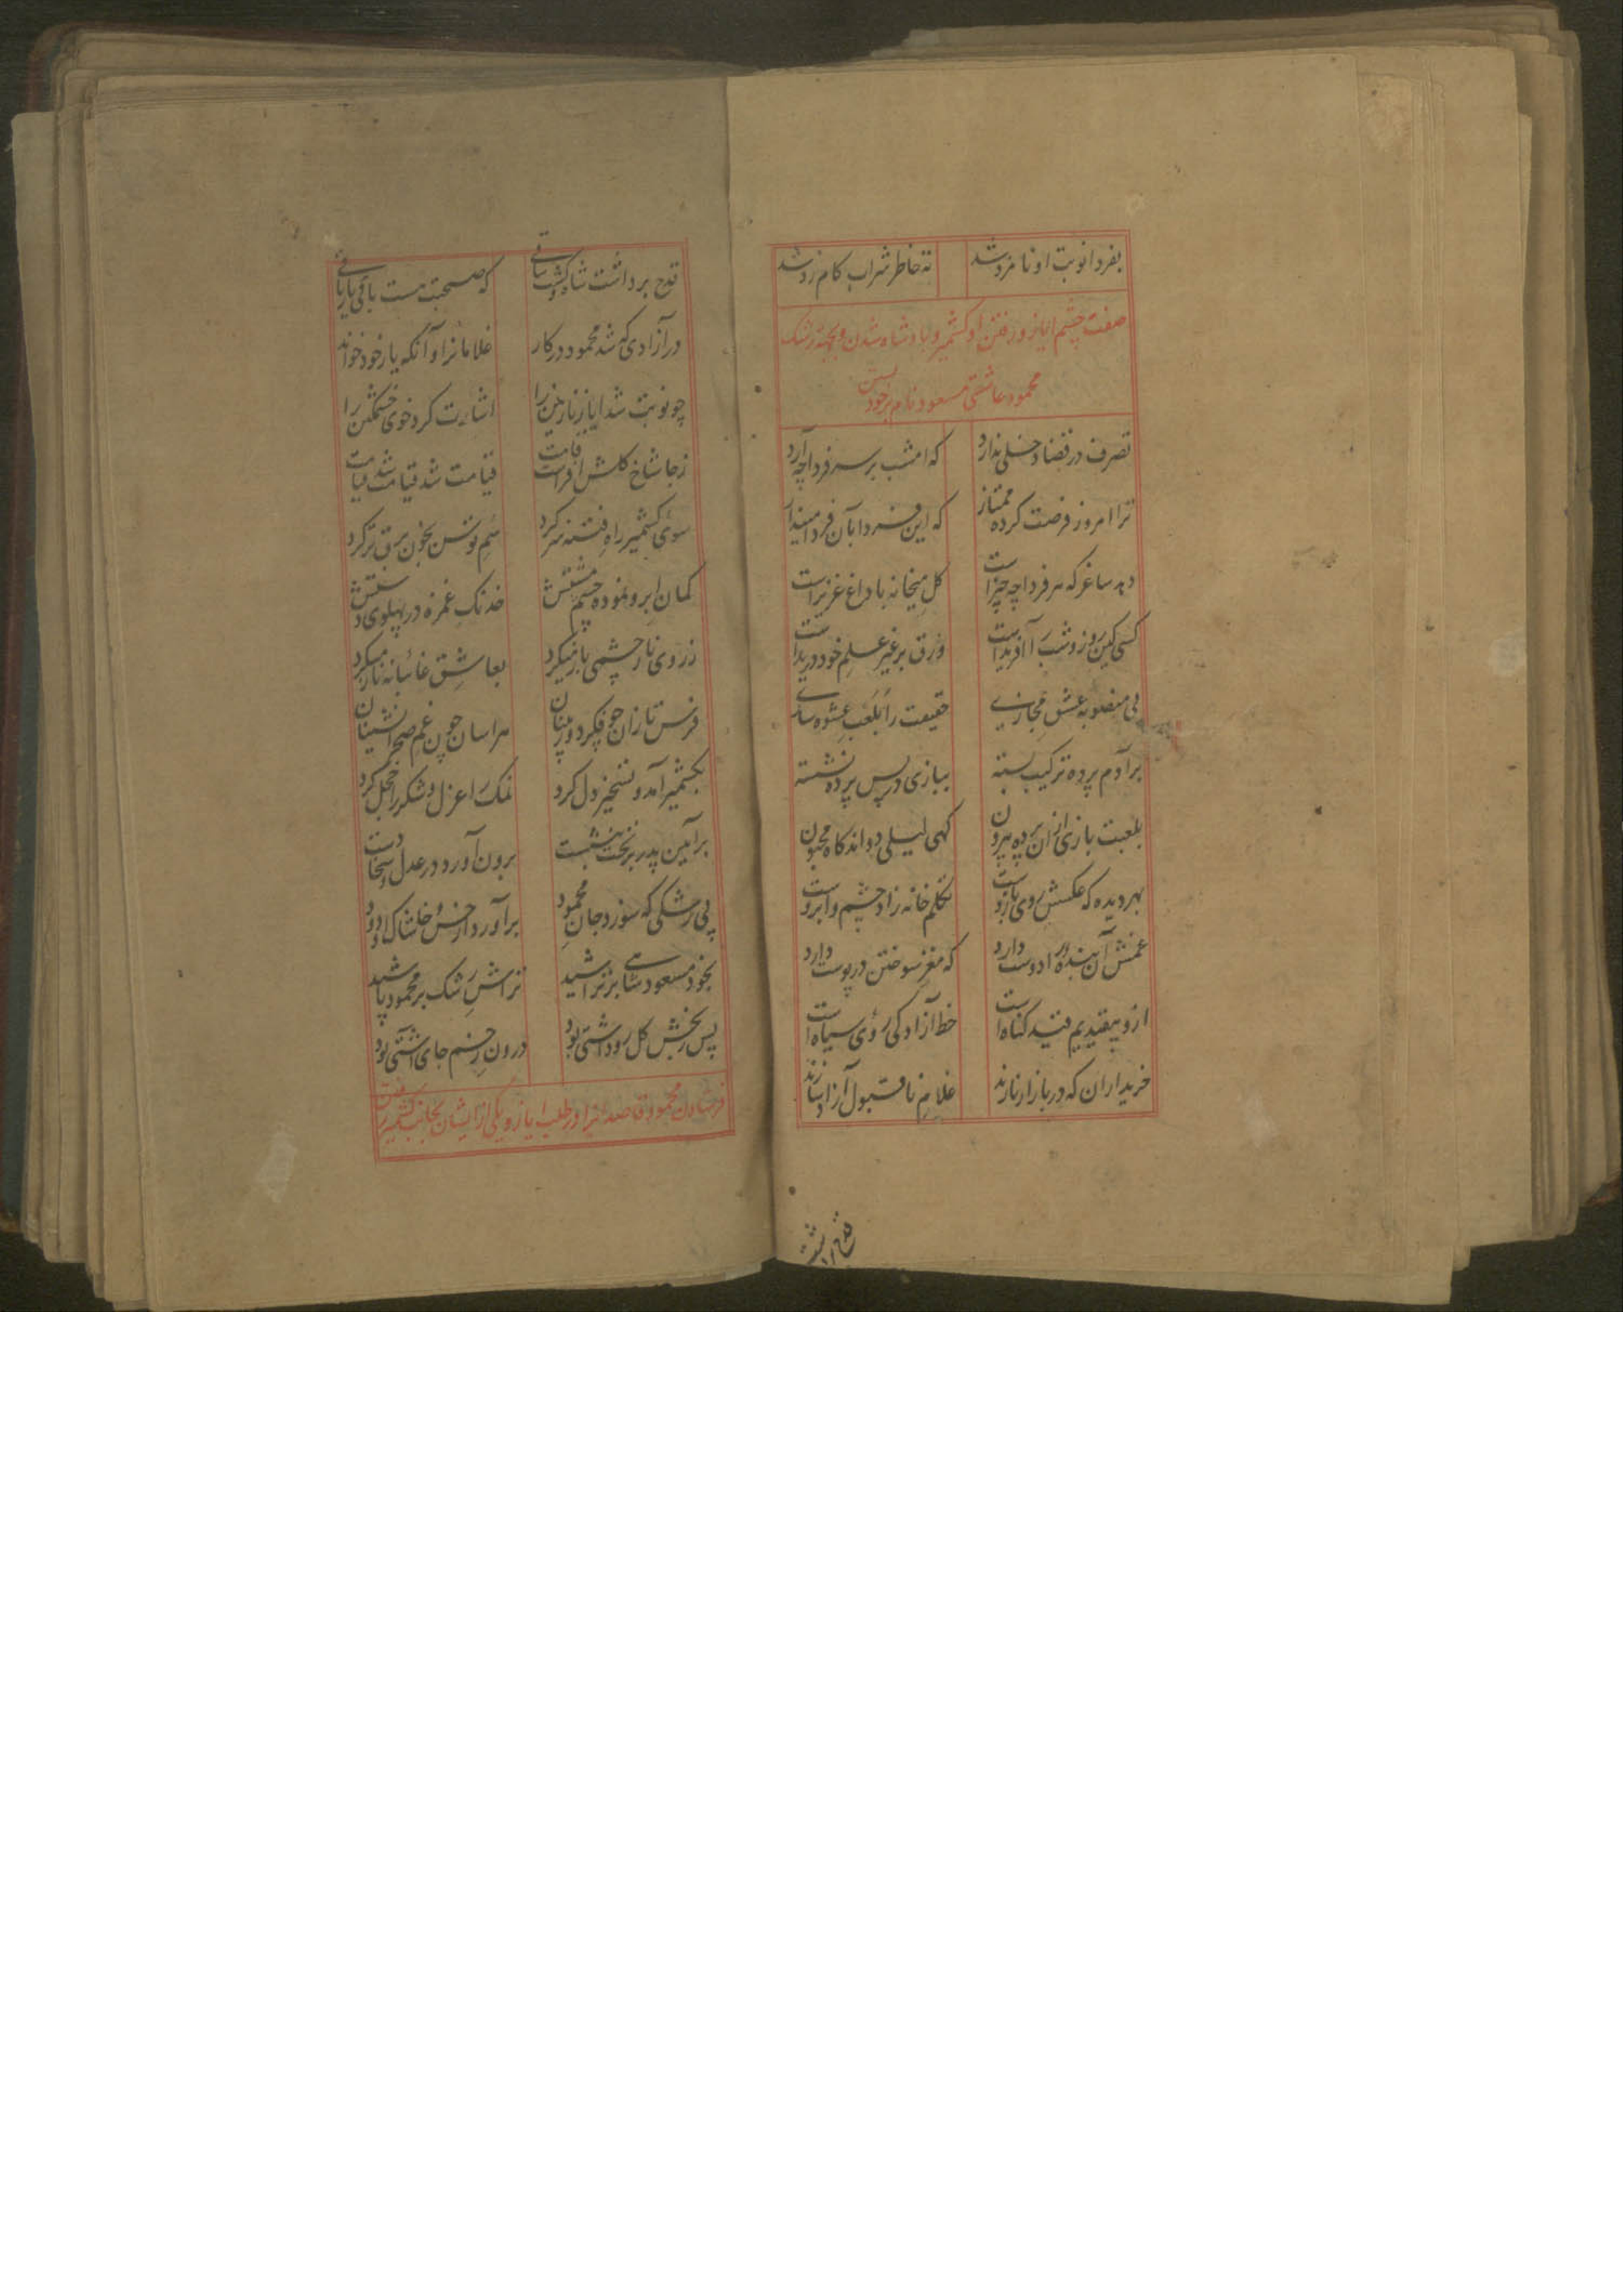 بفردا نوبت او نامزد شد ته خاطر شراب کام زد شد
صفت چشم ایاز و رفتن او کشمیر و بادشاه شدن و بجهته رشک
محمود عاشقی مسعود نام بر خود بستن
تصرف در قضا دخلی ندارد که امشب بر سر فردا چه آرد
ترا امروز فرصت کرده ممتاز که این فردا بآن فردا مینداز
دهد ساغر که هر فردا چه چیز است گل میخانه با داغ عزیز است
کسی کین روز و شب را آفریدست ورق بر غیر علم خود دریدست
پی منصوبه عشق مجازی حقیقت را بلعب عشوه سازی
بر آدم پرده ترکیب بسته ببازی در پس پرده نشسته
بلعبت بازی از آن پرده بیرون گهی لیلی دواند گاه مجنون
بهر دیده که عکسش روی بازوست تکلم خانه زاد چشم و ابروست
غمش آن بنده را دوست دارد که مغز سوختن در پوست دارد
ازو بیقیدیم قید گناه است خط آزادگی روی سیاه است
خریداران که در بازار نازند غلام ناقبول آزاد سازند
قدح برداشت شاه و گشت ساقی که صحبت هست باقی یار باقی
در آزادی که شد محمود در کار غلامانرا و آنکه یار خود خواند
چو نوبت شد ایاز نازنین را اشارت کرد خوی خشمگین را
ز جا شاخ گلش افراخت قامت قیامت شد قیامت شد قیامت
سوی کشمیر راه فتنه سر کرد سم توسن بخون برق تر کرد
کمان ابرو نموده چشم مستش خدنگ غمزه در پهلوی دستش
ز روی ناز چشمی باز میکرد بعاشق غائبانه ناز میکرد
فرس تازان چو فکر دوربینان هراسان چون غم صحرانشینان
بکشمیر آمد و تسخیر دل کرد نمک را عزل و شکر را خجل کرد
بر آیین پدر بر تخت بنشست برون آورد در عدل و سخا دست
پی رشکی که سوزد جان محمود بر آورد از خس و خاشاک او دود
بخود مسعود شاهی بر تراشید تراش رشک بر محمود پاشید
پس رنجش گل رو داشتی بود درون زخم جای آشتی بود
فرستادن محمود قاصدانرا در طلب ایاز و یکی از ایشان بجانب کشمیر رفتن